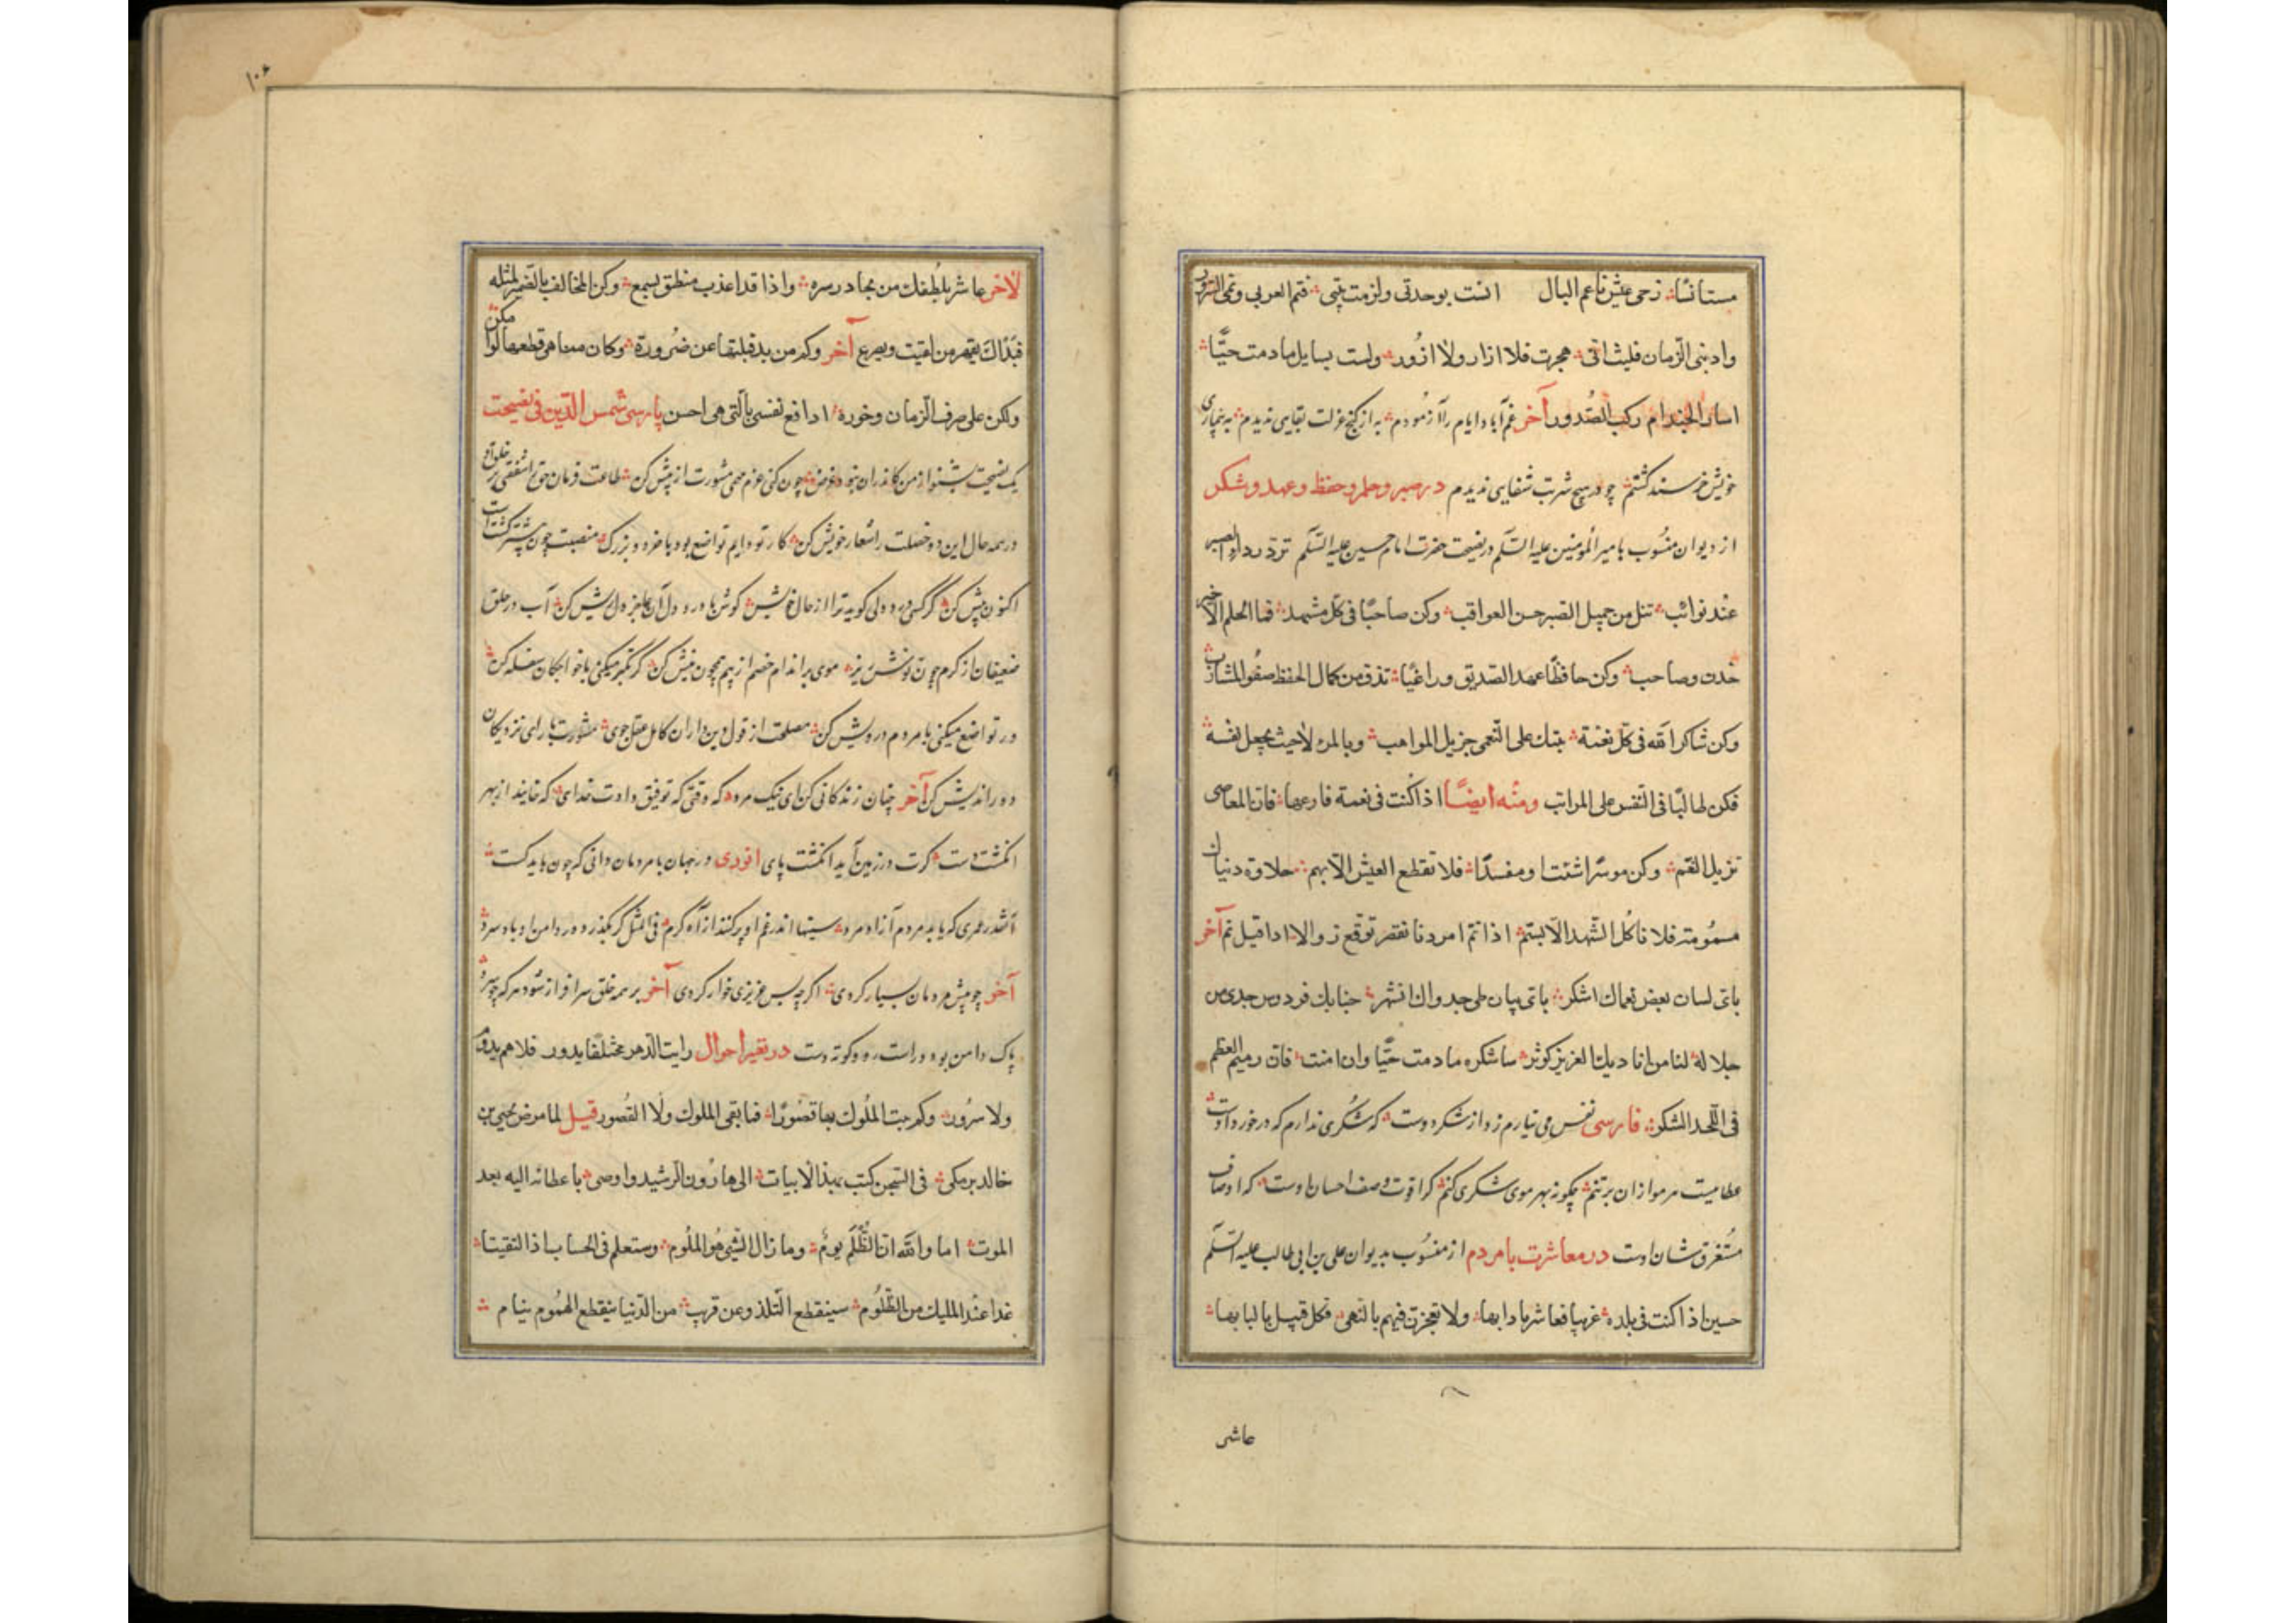 مستانسًا زحی عیش ناعم البال انست بوحدتی ولزمت بیتی فتم العز بی ونمی السرور
وادبنی الزمان فلیت انی هجرت فلا ازار ولا ازور ولست بسایل مادمت حیًّا
اسار الجند ام رکب الصدور آخر غم آباد ایام را آزمودم به از کنج عزلت بقایی ندیدم به بیماری
خویش خرسند کشتم چو در هیچ شربت شفایی ندیدم در صبر و حلم و حفظ و عهد و شکر
از دیوان منسوب بامیر المومنین علیه السلم در نصیحت حضرت امام حسین علیه السلم تردّ رداء الصبر
عند نوائب تنل من جمیل الصبر حسن العواقب وکن صاحبًا فی کل مشهد فما الحلم الا خیر
خدن وصاحب وکن حافظًا عهد الصدیق وراعیًا تذق من کمال الحفظ صفو المشارب
وکن شاکرا لله فی کل نعمة یثبک علی النعمی جزیل المواهب وما المرء الا حیث یجعل نفسه
فکن طالبًا فی النفس علی المراتب ومنه ایضًا اذا کنت فی نعمة فارعها فان المعاصی
تزیل النعم وکن موسرا شئت او مفسدًا فلا تقطع العیش الا بهم حلاوة دنیاک
مسمومة فلا تاکل الشهد الا بسم اذا تم امر دنا نقصه توقع زوالا اذا قیل تم آخر
بای لسان بعض نعماک اشکر بای بیان طی جدواک انشر جنابک فردوس
جلاله لنا من ایادیک الغزیر کوثر ساشکره مادمت حیًّا وان امت فان رمیم العظم
فی اللحد الشکر فارسی نفس می نیارم زد از شکر دوست که شکری ندارم که در خورد اوست
عطاییست هر مو ازان بر تنم چکونه بهر موی شکری کنم کرا قوت وصف احسان اوست که اوصاف
مستغرق شان اوست در معاشرت با مردم از منسوب بدیوان علی بن ابی طالب علیه السلم
حسین اذا کنت فی بلدة غریبا فعاشر بادابها ولا تفخرن فیهم بالنهی فکل قبیل بالبابها
عاشر
۱۰۶
لاخر عاشر بلطفک من مجادر سره واذا قد اعذب منطق یسمع وکن المخالف بالضمیر لمثله
فبذاک یقهر من لقیت ویصرع آخر وکم من ید قبلتها عن ضرورة وکان منا هی قطعها لو امکن
ولکن علی صرف الزمان وجوره ادافع نفسی بالتی هی احسن پارسی شمس الدین فی نصیحت
یک نصیحت بشنو از من کاندران نبود غرض چون کنی عزم مهمی مشورت از پیش کن طاعت فرمان حق را شفقتی بر خلق او
در همه حال این دو خصلت را شعار خویش کن کار تو دایم تواضع بود با خرد و بزرک منصبت چون بیشتر کشتست
اکنون بیش کن کر کسی درد دلی کوید ترا از حال خویش کوش با درد دل آن عاجز دل ریش کن آب در حلق
ضعیفان از کرم چون نوش ریز موی بر اندام خصم از بیم همچون نیش کن کر تکبر میکنی با خواجکان سفله کن
ور تواضع میکنی با مردم درویش کن مصلحت از قول دین داران کامل عقل جوی مشورت با رای نزدیکان
دوراندیش کن آخر چنان زندکانی کن ای نیک مرد که وقتی که توفیق دادت خدای که خایند از بهر
انکشت دست کرت در زمین آید انکشت پای در جهان با مردمان دانی که چون باید کست
آنقدر عمری که یابد مردم آزاد مرد سینها اندر غم او پر کنند از آه کرم فی المثل کر بکذرد در دامن او باد سرد
آخر چو پیش مردمان بسیار کردی اکرچه بس عزیزی خوار کردی آخر بر همه خلق سرافراز شود هر که چو سرو
پاک دامن بود و راست رو و کوته دست در تغیر احوال رایت الدهر مختلفا یدور فلا هم یدوم
ولا سرور وکم بنت الملوک بها قصورًا فما بقی الملوک ولا القصور قیل لما مرض یحیی بن
خالد برمکی فی السجن کتب بهذا الابیات الی هارون الرشید واوصی باعطائه الیه بعد
الموت اما والله ان الظلم لوم وما زال الشی هو الملوم وستعلم فی الحساب اذا التقینا
غدا عند الملیک من الظلوم سینقطع التلذذ وعن قریب من الدنیا ینقطع الهموم ینام